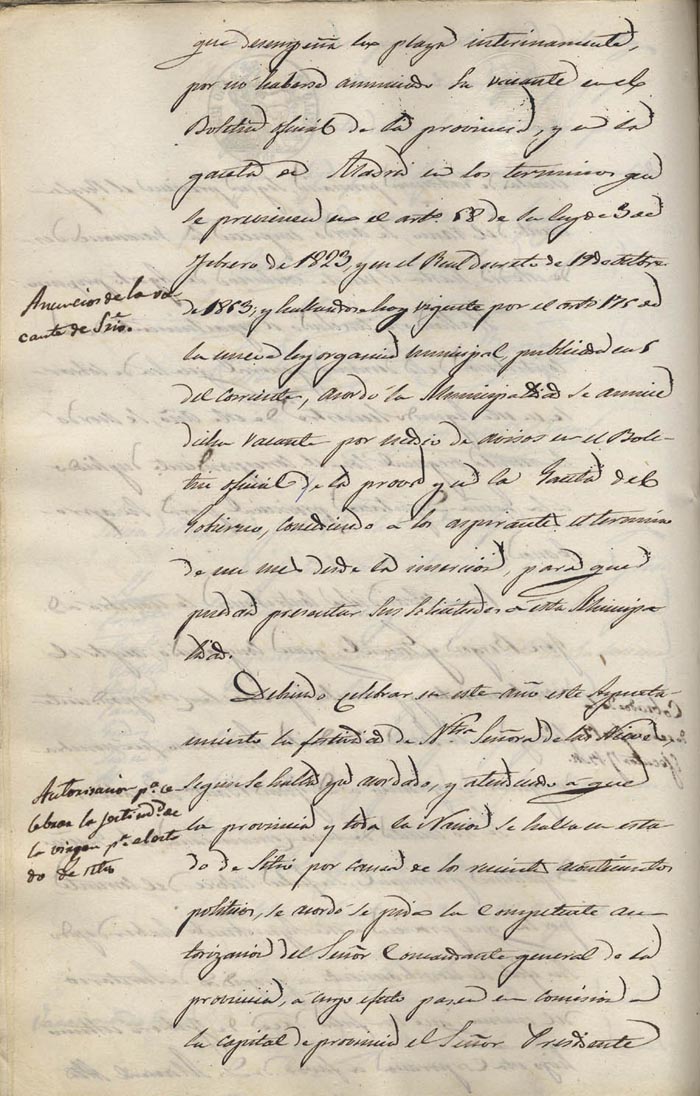 que desempeña la plaza interinamente,
por nó haberse anunciado su vacante en el
Boletin oficial de la provincia, y en la
gaceta de Madrid en los terminos que
se previenen en el artº. 58 de la ley de 3 de
febrero de 1823, y en el Real decreto de 19 de octubre
de 1853; y hallandose hoy vigente por el artº 175 de
la nueva ley organica municipal, publicada en 5
del corriente, acordó la Municipalidad se anuncie
dicha vacante por medio de avisos en el Bole-
tin oficial de la provª y en la Gaceta del
Gobierno, concediendo a los aspirantes el termino
de un mes desde la insercion, para que
puedan presentar sus solicitudes a esta Municipa
lidad.
Anuncios de la va-
cante de Srio.
Debiendo celebrar en este año este Ayunta-
miento la festividad de Ntra Señora de las Nieves,
segun se halla yá acordado, y atendiendo a que
la provincia y toda la Nacion se halla en esta-
do de Sitio por causa de los recientes acontecimtos
politicos, se acordó se pida la competente au-
torizacion del Señor Comandante general de la
provincia, a cuyo efecto pasen en comision a
la capital de provincia el Señor Presidente
Autorizacion pª ce
lebrar la festividd. de
la virgen pr. el esta
do de sitio